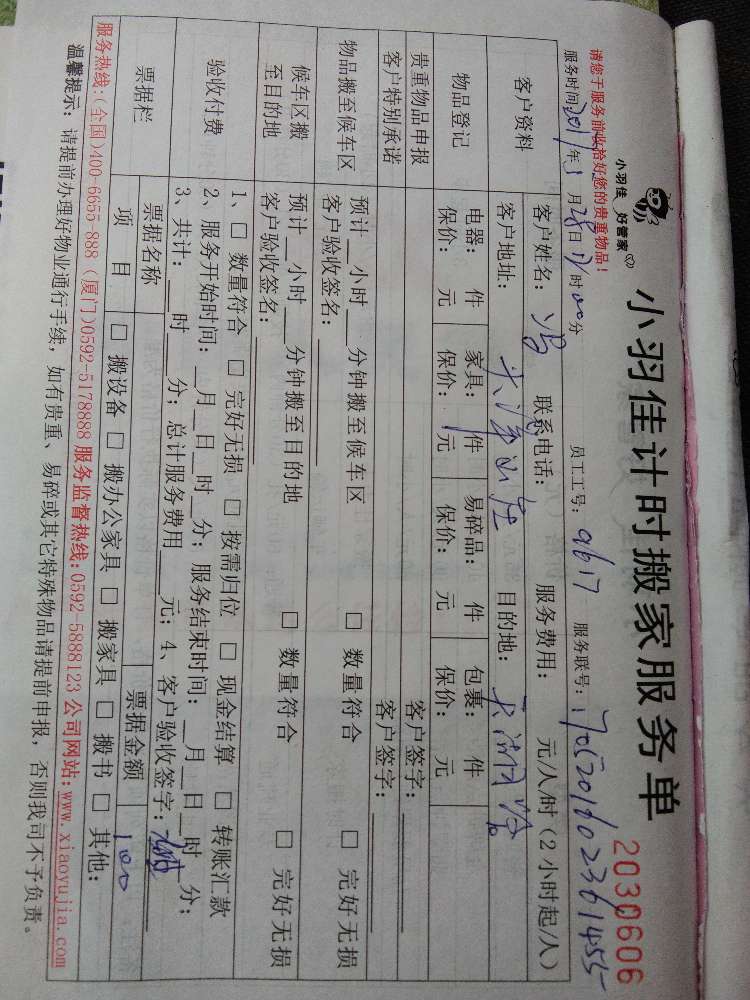 小羽佳 好管家
小羽佳计时搬家服务单
2030606
请您于服务前收拾好您的贵重物品!
员工工号: 9617 服务联号:
服务时间: 年 月28日 时00分
客户资料
客户姓名: 冯 联系电话: 服务费用: 元/人/时(2小时起/人)
客户地址: 目的地:
物品登记
电器: 件 家具: 件 易碎品: 件 包裹: 件
保价: 元 保价: 元 保价: 元 保价: 元
贵重物品申报
客户签字:
客户特别承诺
客户签字:
物品搬至候车区
预计__小时__分钟搬至候车区 □ 数量符合 □ 完好无损
客户验收签名:
候车区搬至目的地
预计__小时__分钟搬至目的地 □ 数量符合 □ 完好无损
客户验收签名:
验收付费
1、□ 数量符合 □ 完好无损 □ 按需归位 □ 现金结算 □ 转账汇款
2、服务开始时间:__月__日__时__分; 服务结束时间:__月__日__时__分;
3、共计:__时__分; 总计服务费用____元; 4、客户验收签字:
票据栏
票据名称 票据金额
项目 □ 搬设备 □ 搬办公家具 □ 搬家具 □ 搬书 □ 其他: 100
服务热线:(全国)400-6655-888 (厦门)0592-5178888 服务监督热线:0592-5888123 公司网站:www.xiaoyujia.com
温馨提示: 请提前办理好物业通行手续, 如有贵重、易碎或其它特殊物品请提前申报, 否则我司不予负责。